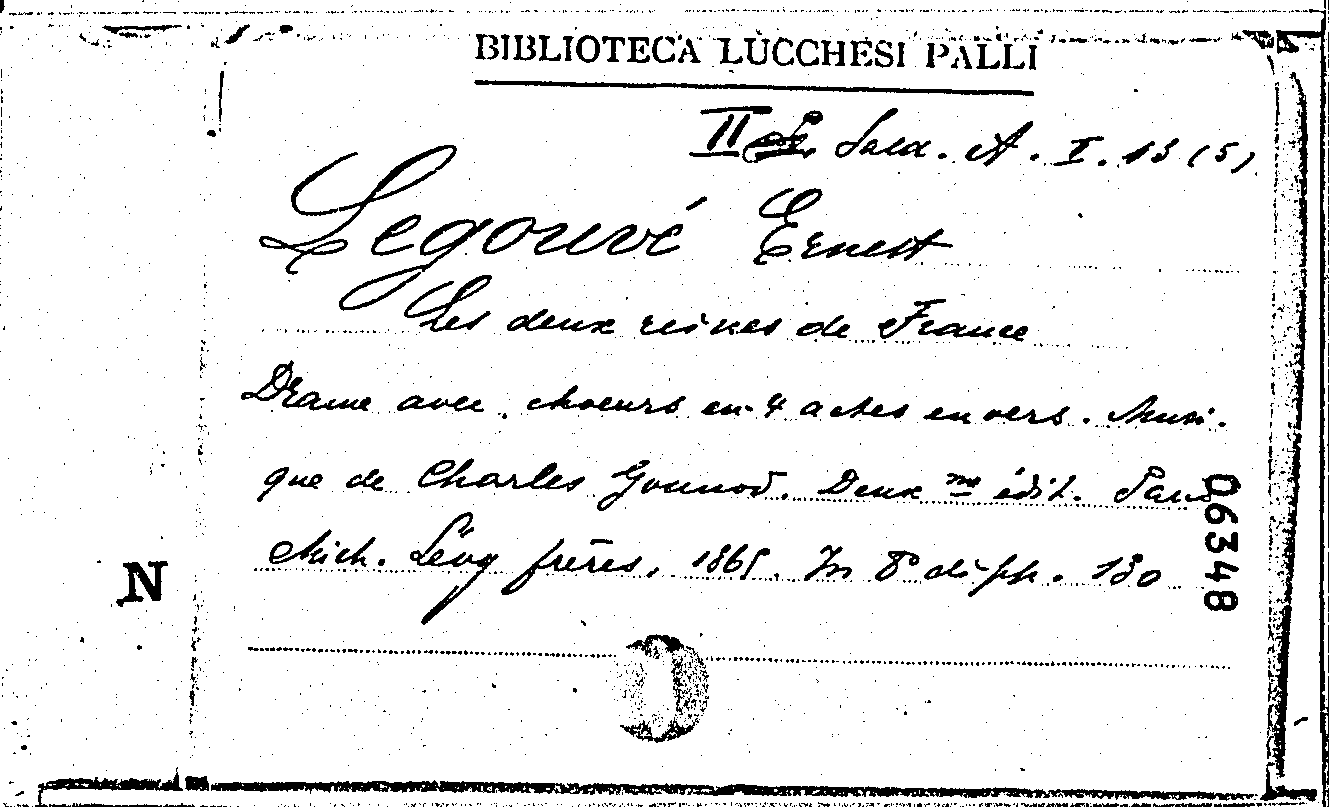 BIBLIOTECA LUCCHESI PALLI
II Sala. A. I. 13 (5)
Legouvé Ernest
Les deux reines de France
Drame avec choeurs en 4 actes en vers. Musi-
que de Charles Gounod. Deux me édit. Paris
Mich. Lévy frères, 1865. In 8° di pp. 130
06348
N